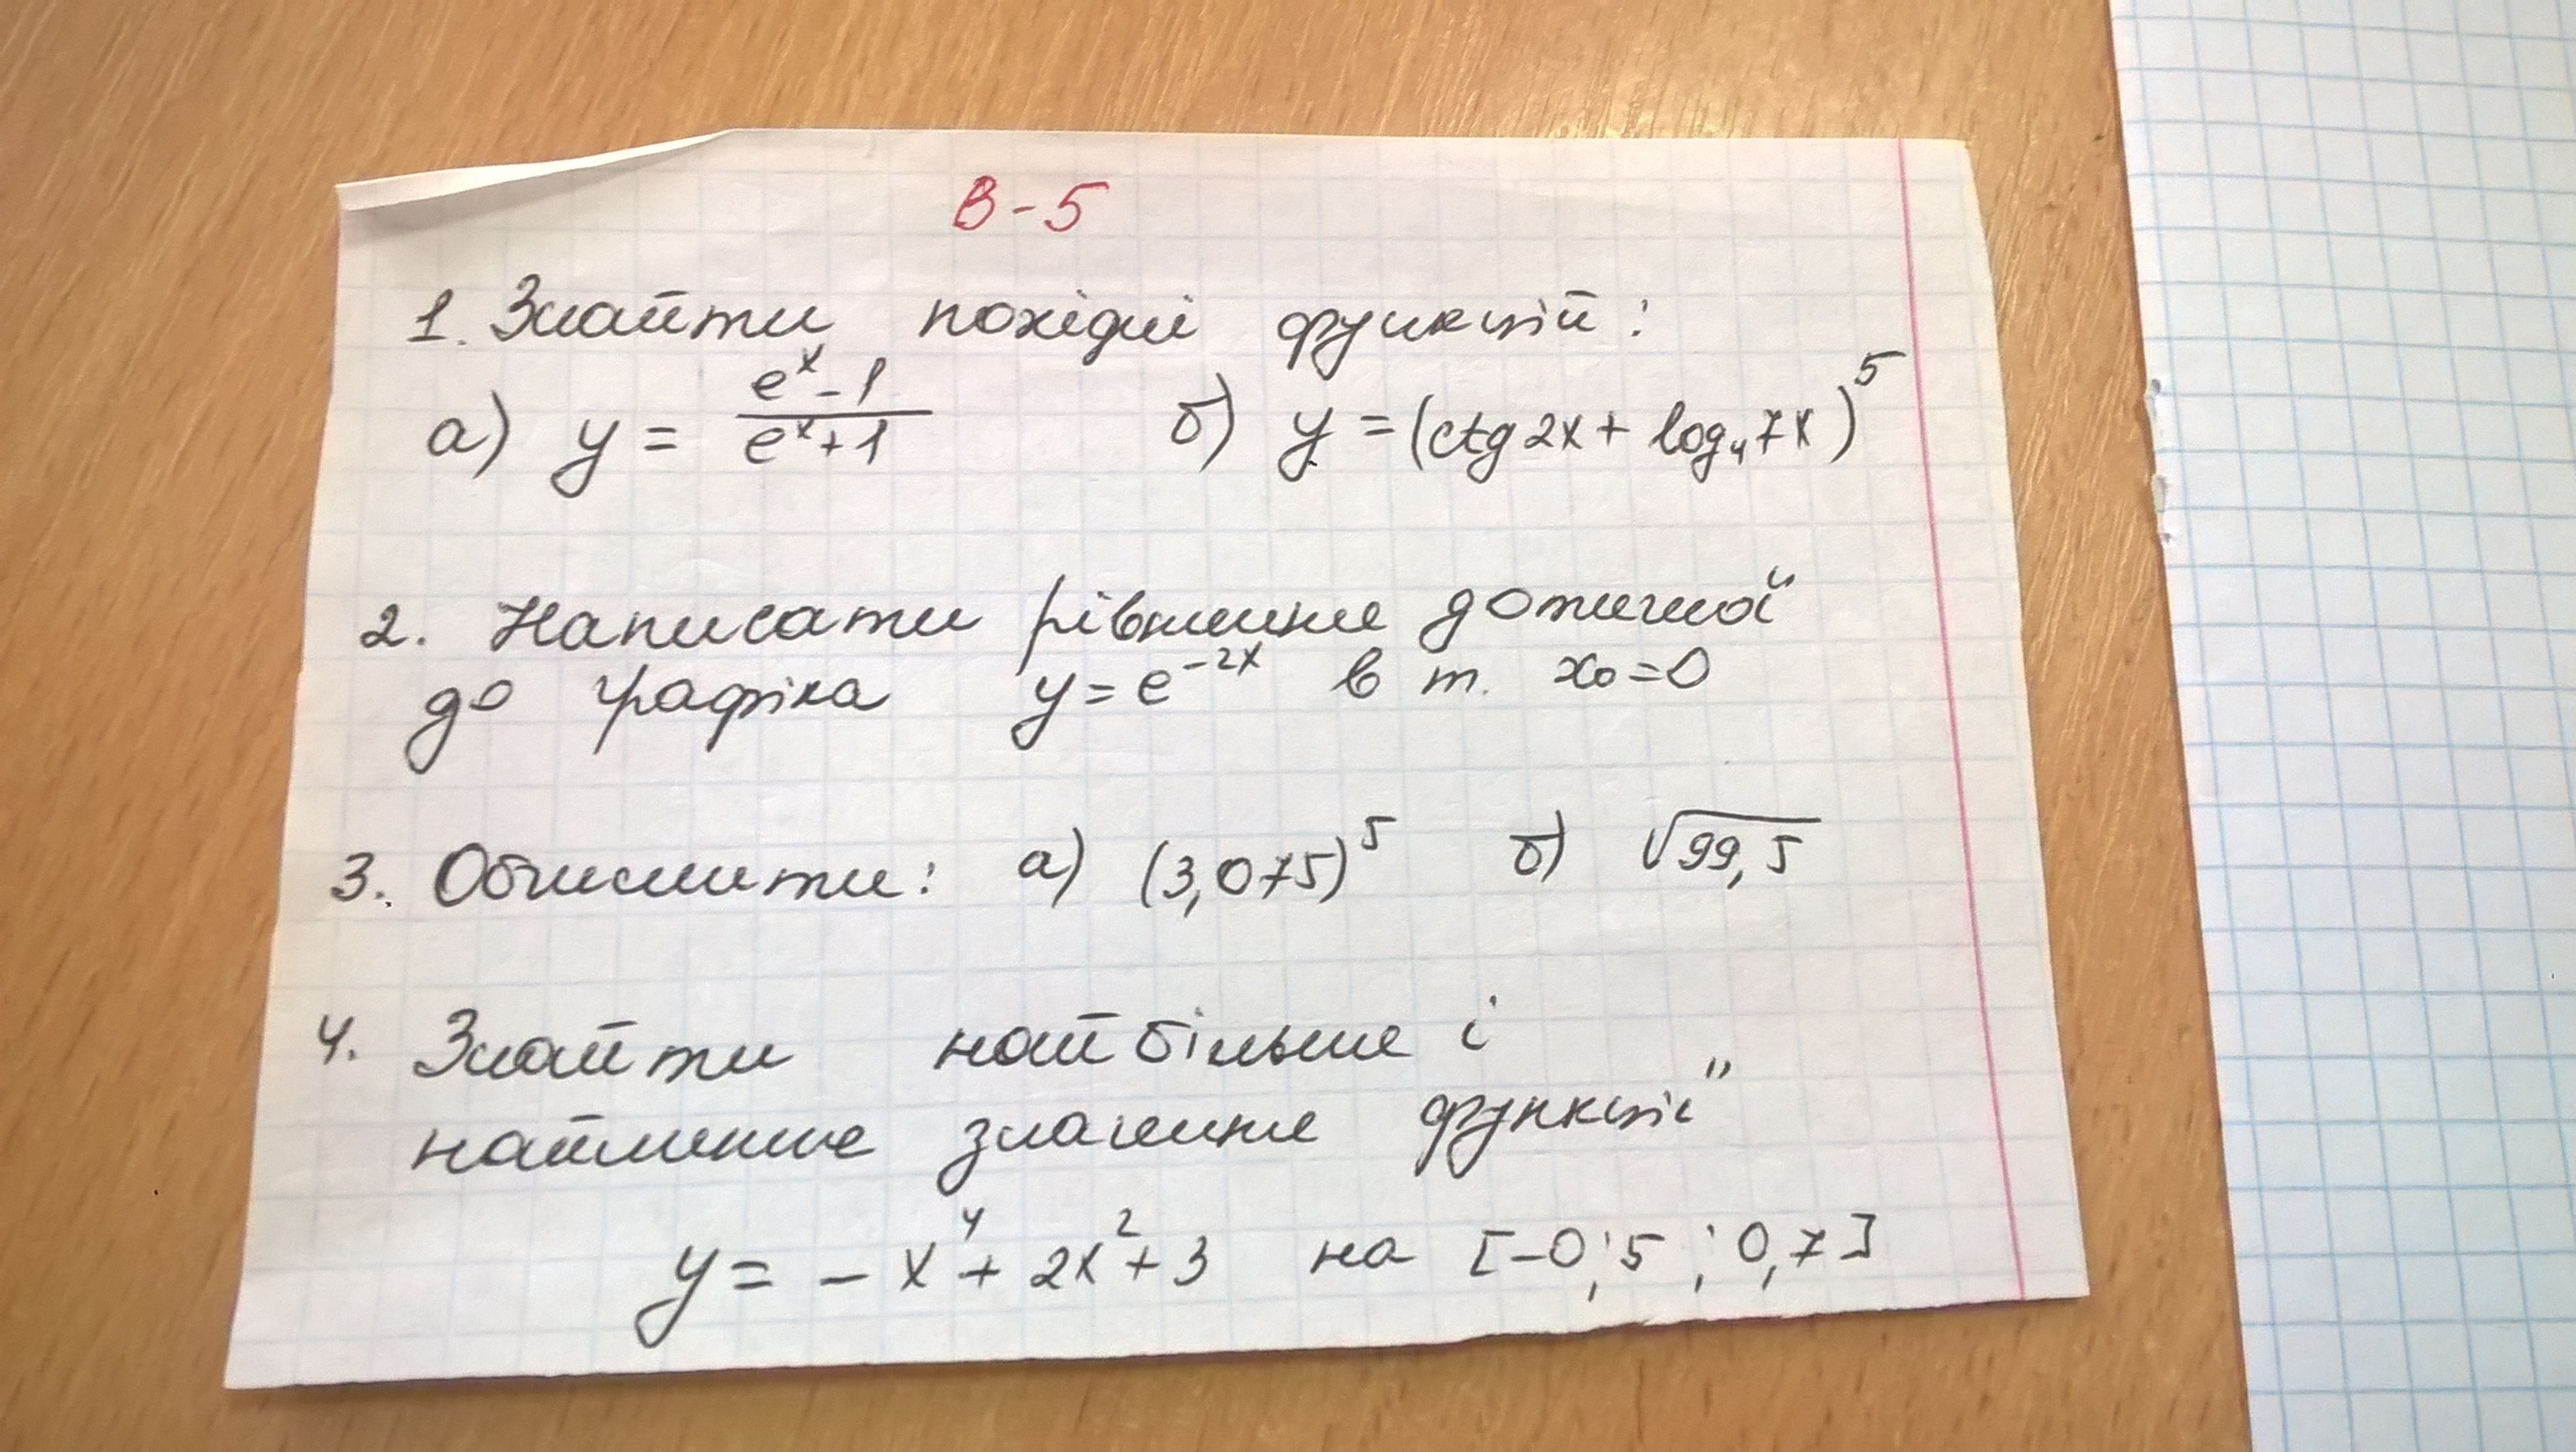 В-5
1. Знайти похідні функцій:
а) y = (e^x - 1)/(e^x + 1) б) y = (ctg 2x + log₄ 7x)^5
2. Написати рівняння дотичної
до графіка y = e^(-2x) в т. x₀ = 0
3. Обчислити: а) (3,075)^5 б) √99,5
4. Знайти найбільше і
найменше значення функції
y = - x^4 + 2x^2 + 3 на [-0,5 ; 0,7]